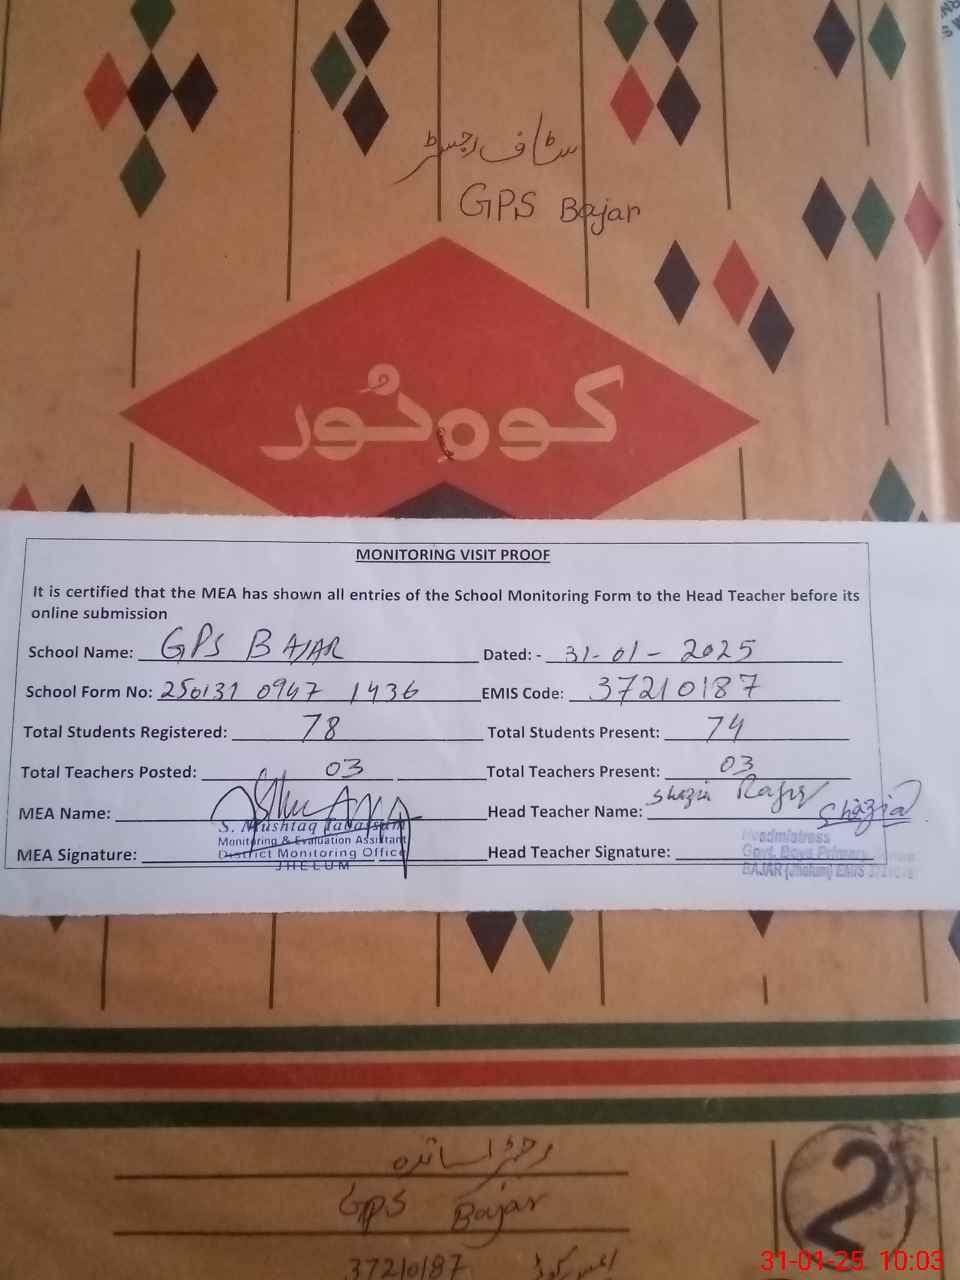 سٹاف رجسٹر
GPS Bajar
کوہ نُور
MONITORING VISIT PROOF
It is certified that the MEA has shown all entries of the School Monitoring Form to the Head Teacher before its
online submission
School Name: GPS BAJAR Dated: - 31-01-2025
School Form No: 250131 0947 1436 EMIS Code: 37210187
Total Students Registered: 78 Total Students Present: 74
Total Teachers Posted: 03 Total Teachers Present: 03
MEA Name: Head Teacher Name: Shazia Shazia
S. Mushtaq Tabassum
Monitoring & Evaluation Assistant
MEA Signature: District Monitoring Office Head Teacher Signature:
JHELUM
Headmistress
Govt. Boys Primary
BAJAR (Jhelum) EMIS
رجسٹر اساتذہ
GPS Bajar
37210187
2
31-01-25 10:03